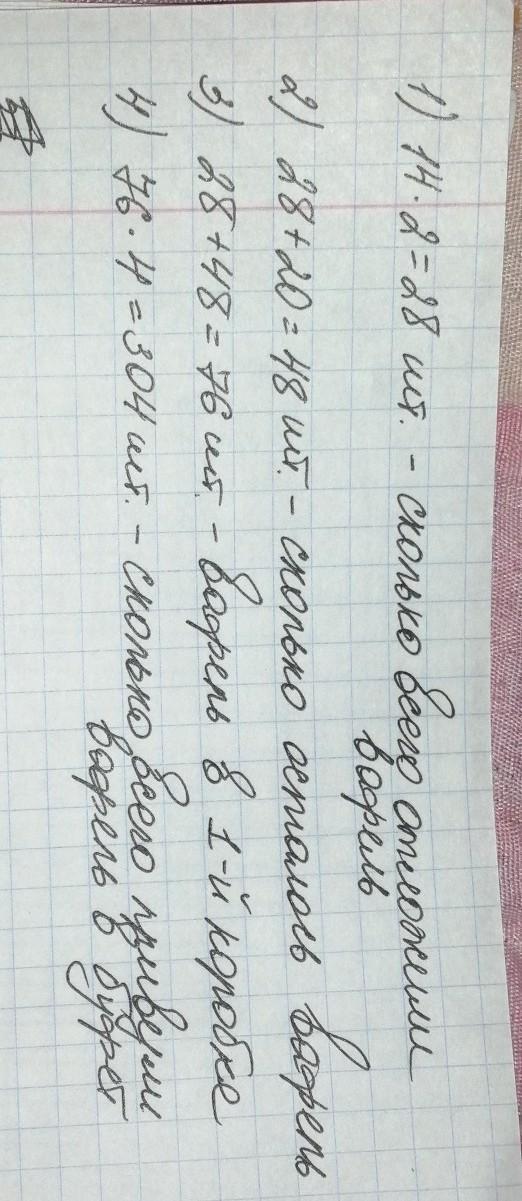 1) 14·2=28 шт. - сколько всего отложили
вафель
2) 28+20=48 шт. - сколько осталось вафель
3) 28+48=76 шт. - вафель в 1-й коробке
4) 76·4=304 шт. - сколько всего привезли
вафель в буфет